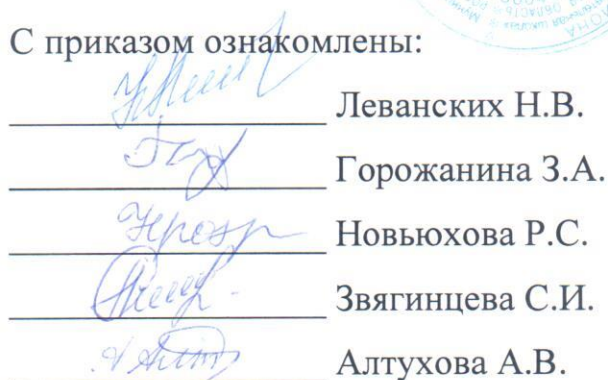 С приказом ознакомлены:
Леванских Н.В.
Горожанина З.А.
Новьюхова Р.С.
Звягинцева С.И.
Алтухова А.В.